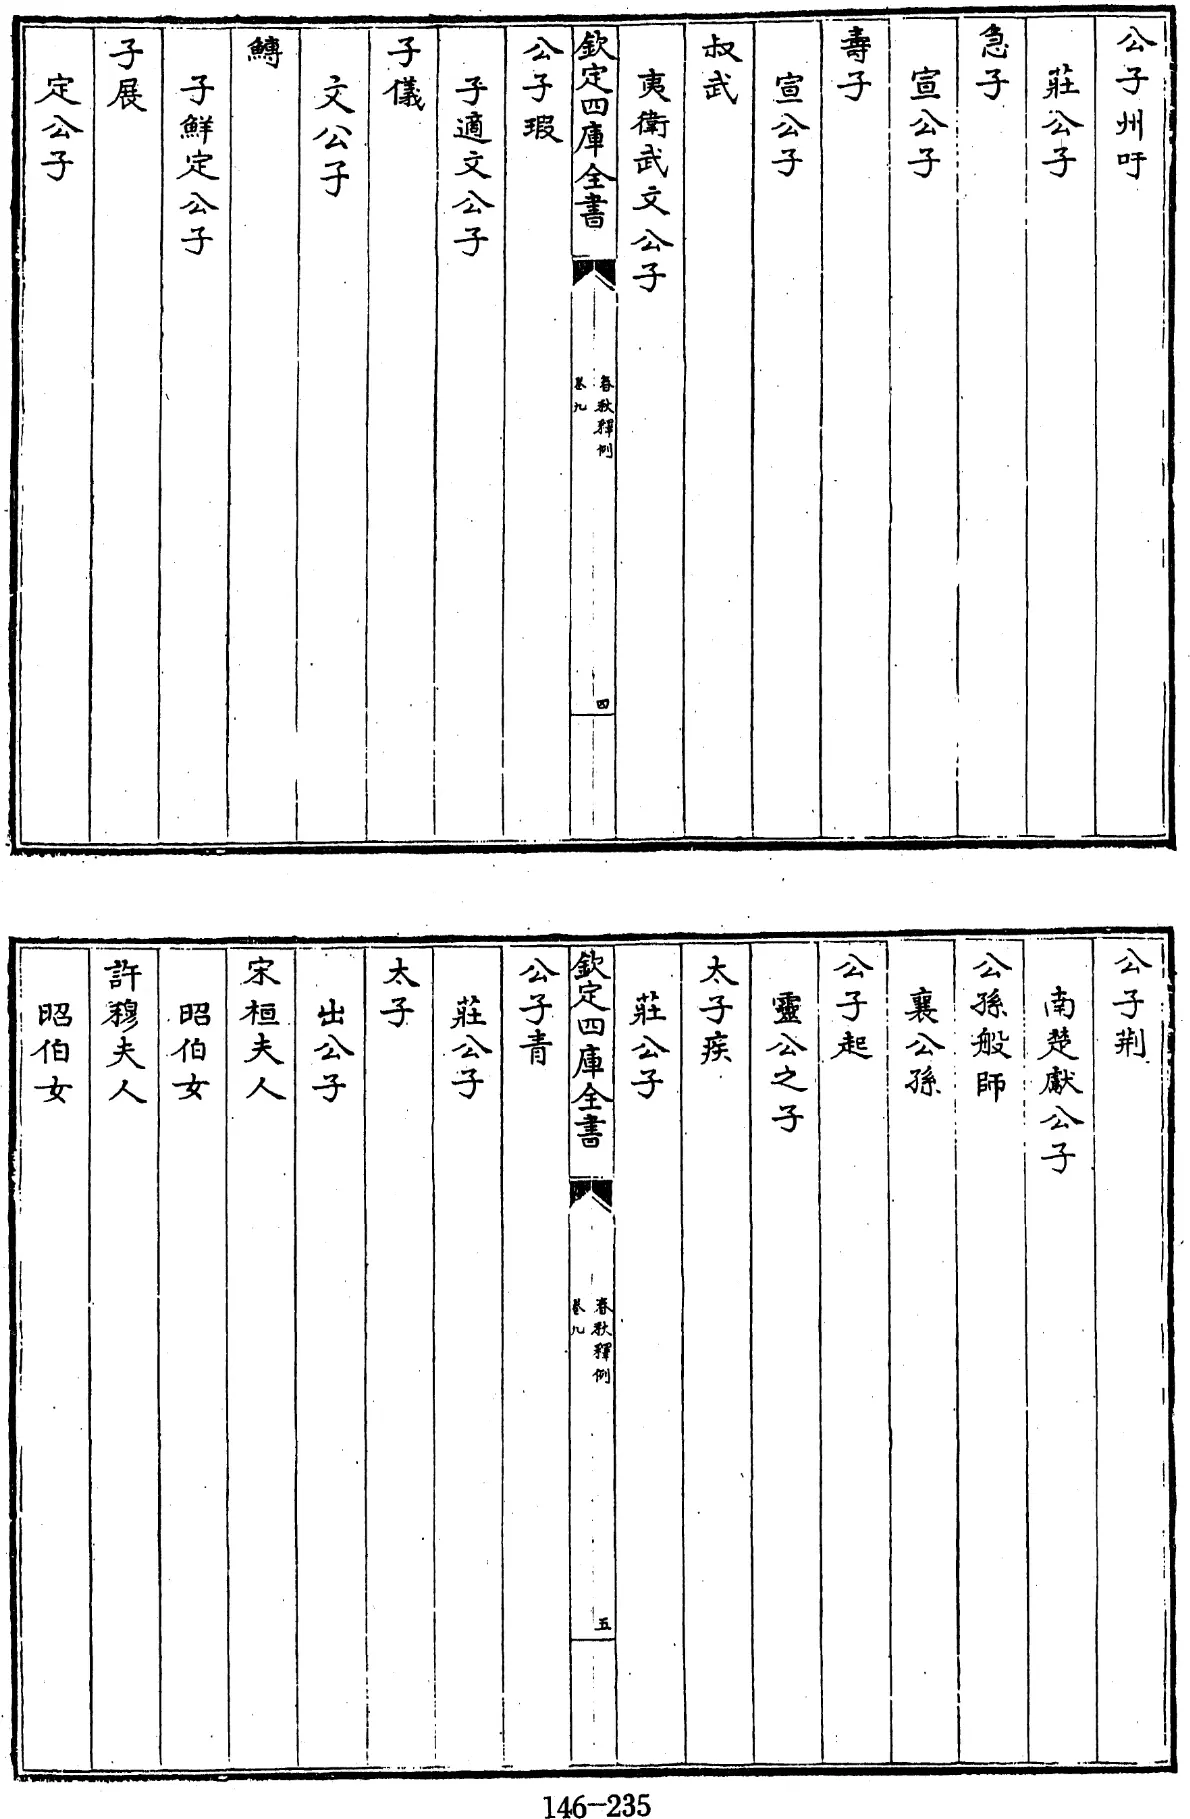 公子州吁
莊公子
急子
宣公子
壽子
宣公子
叔武
夷衛武文公子
欽定四庫全書
春秋釋例
卷九
四
公子瑕
子適文公子
子儀
文公子
鱄
子鮮定公子
子展
定公子
公子荆
南楚獻公子
公孫般師
襄公孫
公子起
靈公之子
太子疾
莊公子
欽定四庫全書
春秋釋例
卷九
五
公子青
莊公子
太子
出公子
宋桓夫人
昭伯女
許穆夫人
昭伯女
146-235